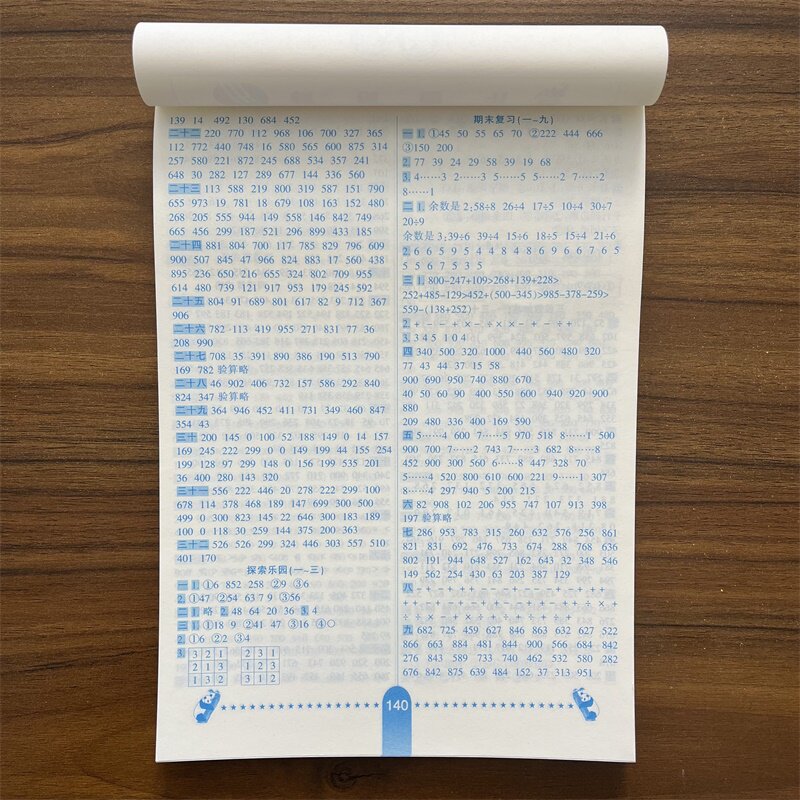 139 14 492 130 684 452
二十二 220 770 112 968 106 700 327 365
112 772 440 748 16 580 565 600 875 314
257 580 221 872 245 688 534 357 241
648 30 282 127 289 677 144 336 560
二十三 113 588 219 800 319 587 151 790
655 973 19 781 18 679 108 163 152 480
268 205 555 944 149 558 146 842 749
665 456 299 187 521 296 899 433 185
二十四 881 804 700 117 785 829 796 609
900 507 845 47 966 824 883 17 560 438
895 236 650 216 655 324 802 709 955
614 480 739 121 917 953 179 245 592
二十五 804 91 689 801 617 82 9 712 367
906
二十六 782 113 419 955 271 831 77 36
208 990
二十七 708 35 391 890 386 190 513 790
169 782 验算略
二十八 46 902 406 732 157 586 292 840
824 347 验算略
二十九 364 946 452 411 731 349 460 847
354 43
三十 200 145 0 100 52 188 149 0 14 157
169 245 222 299 0 0 149 199 44 155 254
199 128 97 299 148 0 156 199 535 201
36 400 280 143 320
三十一 556 222 446 20 278 222 299 100
678 114 378 468 189 147 699 300 500
499 0 300 823 145 22 646 300 183 189
100 0 118 30 259 144 375 200 363
三十二 526 526 299 324 446 303 557 510
401 170
探索乐园(一~三)
一 1. ①6 852 258 ②9 ③6
2. ①47 ②54 63 7 9 ③56
二 1. 略 2. 48 64 20 36 3. 4
三 1. ①18 9 ②41 47 ③16 ④○
2. ①6 ②2 ③4
3.
3 2 1 2 3 1
2 1 3 1 2 3
1 3 2 3 1 2
期末复习(一~九)
一 1. ①45 50 55 65 70 ②222 444 666
③150 200
2. 77 39 24 29 58 39 19 68
3. 4……3 2……3 5……5 5……2 7……2
8……1
二 1. 余数是 2:58÷8 26÷4 17÷5 10÷4 30÷7
20÷9
余数是 3:39÷6 39÷4 15÷6 18÷5 15÷4 21÷6
2. 6 6 5 9 5 4 4 8 4 8 6 9 6 6 7 6 5
5 5 6 7 5 3 5
三 1. 800-247+109>268+139+228>
252+485-129>452+(500-345)>985-378-259>
559-(138+252)
2. + - - + × - ÷ × × - + - ÷ +
3. 3 4 5 1 0 4
四 340 500 320 1000 440 560 480 320
77 43 44 37 15 58
900 690 950 740 880 670
40 50 60 90 400 550 600 940 920 900
880
209 480 336 400 169 590
五 5……4 600 7……5 970 518 8……1 500
900 700 7……2 743 7……3 682 8……8
452 900 300 560 6……8 447 328 70
5……4 520 800 610 600 221 9……1 307
8……4 297 940 5 200 215
六 82 908 102 206 955 747 107 913 398
197 验算略
七 286 953 783 315 260 632 576 256 861
821 831 692 476 733 674 288 768 636
802 191 944 648 527 162 643 32 348 546
149 562 254 430 63 203 387 129
八
九 682 725 459 627 846 863 632 627 522
866 663 884 481 844 900 566 684 842
276 843 589 733 740 462 532 580 282
676 842 875 639 484 152 37 313 951
140